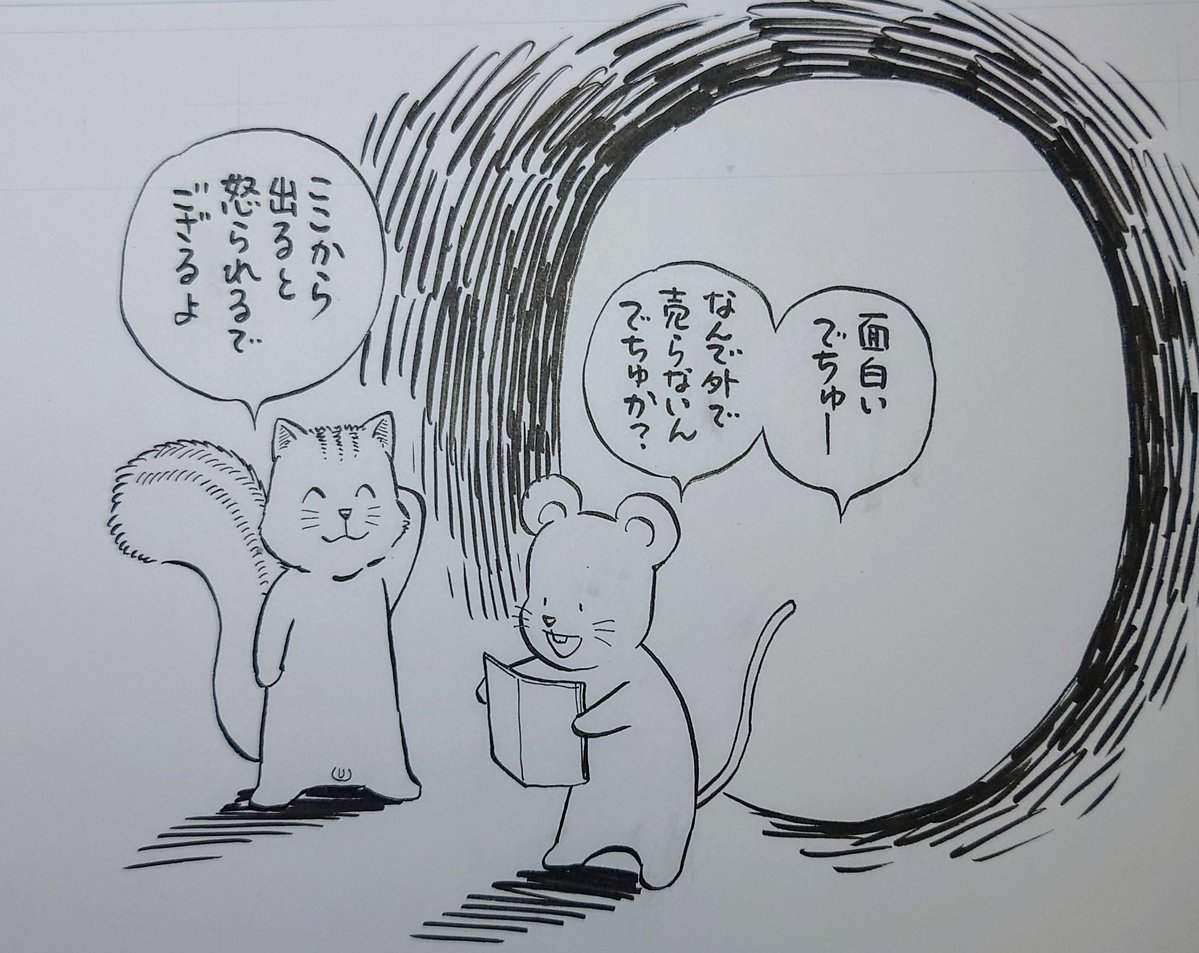 面白い
でちゅー
なんで外で
売らないん
でちゅか?
ここから
出ると
怒られるで
ござるよ